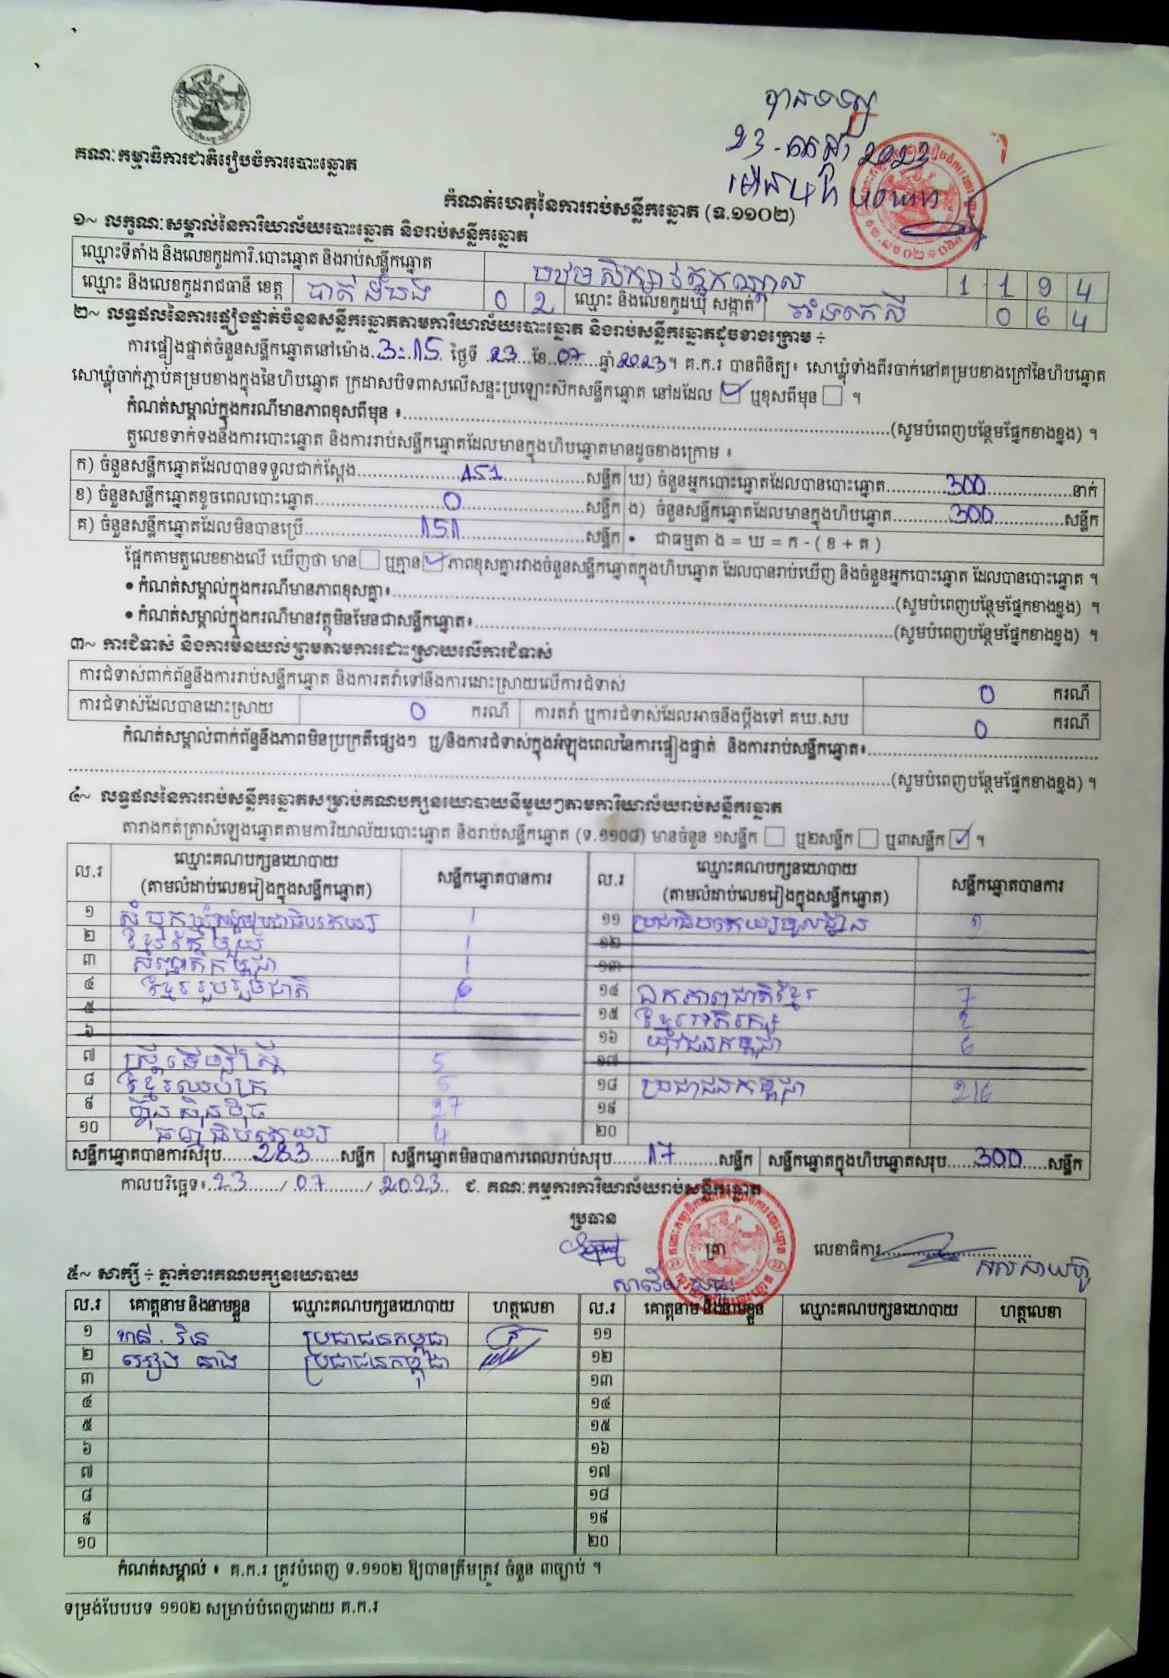 បានទទួល
23-កក្កដា 2023
គណៈកម្មាធិការជាតិរៀបចំការបោះឆ្នោត
កំណត់ហេតុនៃការរាប់សន្លឹកឆ្នោត (ទ.១១០២)
១~ លក្ខណៈសម្គាល់នៃការិយាល័យបោះឆ្នោត និងរាប់សន្លឹកឆ្នោត
ឈ្មោះទីតាំង និងលេខកូដការិ.បោះឆ្នោត និងរាប់សន្លឹកឆ្នោត 1 1 9 4
ឈ្មោះ និងលេខកូដរាជធានី ខេត្ត បាត់ដំបង 0 2 ឈ្មោះ និងលេខកូដឃុំ សង្កាត់ 0 6 4
២~ លទ្ធផលនៃការផ្ទៀងផ្ទាត់ចំនួនសន្លឹកឆ្នោតតាមការិយាល័យបោះឆ្នោត និងរាប់សន្លឹកឆ្នោតដូចខាងក្រោម ÷
ការផ្ទៀងផ្ទាត់ចំនួនសន្លឹកឆ្នោតនៅម៉ោង 3:15 ថ្ងៃទី 23 ខែ 07 ឆ្នាំ 2023។ គ.ក.រ បានពិនិត្យ៖ សោឃ្លុំទាំងពីរចាក់នៅគម្របខាងក្រៅនៃហិបឆ្នោត
សោឃ្លុំចាក់ភ្ជាប់គម្របខាងក្នុងនៃហិបឆ្នោត ក្រដាសបិទពាសលើសន្ទះប្រឡោះស៊កសន្លឹកឆ្នោត នៅដដែល ☑ ឬខុសពីមុន ☐ ។
កំណត់សម្គាល់ក្នុងករណីមានភាពខុសពីមុន ៖ (សូមបំពេញបន្ថែមផ្នែកខាងខ្នង) ។
តួលេខទាក់ទងនឹងការបោះឆ្នោត និងការរាប់សន្លឹកឆ្នោតដែលមានក្នុងហិបឆ្នោតមានដូចខាងក្រោម ៖
ក) ចំនួនសន្លឹកឆ្នោតដែលបានទទួលជាក់ស្តែង 451 សន្លឹក ឃ) ចំនួនអ្នកបោះឆ្នោតដែលបានបោះឆ្នោត 300 នាក់
ខ) ចំនួនសន្លឹកឆ្នោតខូចពេលបោះឆ្នោត 0 សន្លឹក ង) ចំនួនសន្លឹកឆ្នោតដែលមានក្នុងហិបឆ្នោត 300 សន្លឹក
គ) ចំនួនសន្លឹកឆ្នោតដែលមិនបានប្រើ 151 សន្លឹក • ជាធម្មតា ង = ឃ = ក - ( ខ + គ )
ផ្អែកតាមតួលេខខាងលើ ឃើញថា មាន ☐ ឬគ្មាន ☑ ភាពខុសគ្នារវាងចំនួនសន្លឹកឆ្នោតក្នុងហិបឆ្នោត ដែលបានរាប់ឃើញ និងចំនួនអ្នកបោះឆ្នោត ដែលបានបោះឆ្នោត ។
• កំណត់សម្គាល់ក្នុងករណីមានភាពខុសគ្នា៖ (សូមបំពេញបន្ថែមផ្នែកខាងខ្នង) ។
• កំណត់សម្គាល់ក្នុងករណីមានវត្ថុមិនមែនជាសន្លឹកឆ្នោត៖ (សូមបំពេញបន្ថែមផ្នែកខាងខ្នង) ។
៣~ ការជំទាស់ និងការមិនយល់ព្រមតាមការដោះស្រាយលើការជំទាស់
ការជំទាស់ពាក់ព័ន្ធនឹងការរាប់សន្លឹកឆ្នោត និងការតវ៉ាទៅនឹងការដោះស្រាយលើការជំទាស់ 0 ករណី
ការជំទាស់ដែលបានដោះស្រាយ 0 ករណី ការតវ៉ា ឬការជំទាស់ដែលអាចនឹងប្តឹងទៅ គឃ.សប 0 ករណី
កំណត់សម្គាល់ពាក់ព័ន្ធនឹងភាពមិនប្រក្រតីផ្សេងៗ ឬ/និងការជំទាស់ក្នុងអំឡុងពេលនៃការផ្ទៀងផ្ទាត់ និងការរាប់សន្លឹកឆ្នោត៖
(សូមបំពេញបន្ថែមផ្នែកខាងខ្នង) ។
៤~ លទ្ធផលនៃការរាប់សន្លឹកឆ្នោតសម្រាប់គណបក្សនយោបាយនីមួយៗតាមការិយាល័យរាប់សន្លឹកឆ្នោត
តារាងកត់ត្រាសំឡេងឆ្នោតតាមការិយាល័យបោះឆ្នោត និងរាប់សន្លឹកឆ្នោត (ទ.១១០៨) មានចំនួន ១សន្លឹក ☐ ឬ២សន្លឹក ☐ ឬ៣សន្លឹក ☑ ។
ល.រ ឈ្មោះគណបក្សនយោបាយ (តាមលំដាប់លេខរៀងក្នុងសន្លឹកឆ្នោត) សន្លឹកឆ្នោតបានការ ល.រ ឈ្មោះគណបក្សនយោបាយ (តាមលំដាប់លេខរៀងក្នុងសន្លឹកឆ្នោត) សន្លឹកឆ្នោតបានការ
១ សំបុកឃ្មុំសង្គមប្រជាធិបតេយ្យ 1 ១១ ប្រជាធិបតេយ្យមូលដ្ឋាន 1
២ ខ្មែររួមរួបជាតិ 1 ១២
៣ សញ្ជាតិកម្ពុជា 1 ១៣
៤ ខ្មែររួបរួមជាតិ 6 ១៤ ឯកភាពជាតិខ្មែរ 7
៥ ១៥ ខ្មែរអភិរក្ស 2
៦ ១៦ យុវជនកម្ពុជា 6
៧ ស្ត្រីដើម្បីស្ត្រី 5 ១៧
៨ ខ្មែរឈប់ក្រ 5 ១៨ ប្រជាជនកម្ពុជា 216
៩ ហ្វ៊ុនស៊ិនប៉ិច 27 ១៩
១០ ធម្មាធិបតេយ្យ 4 ២០
សន្លឹកឆ្នោតបានការសរុប 283 សន្លឹក សន្លឹកឆ្នោតមិនបានការពេលរាប់សរុប 17 សន្លឹក សន្លឹកឆ្នោតក្នុងហិបឆ្នោតសរុប 300 សន្លឹក
កាលបរិច្ឆេទ៖ 23 / 07 / 2023 ជ. គណៈកម្មការការិយាល័យរាប់សន្លឹកឆ្នោត
ប្រធាន ត្រា លេខាធិការ
៥~ សាក្សី ÷ ភ្នាក់ងារគណបក្សនយោបាយ
ល.រ គោត្តនាម និងនាមខ្លួន ឈ្មោះគណបក្សនយោបាយ ហត្ថលេខា ល.រ គោត្តនាម និងនាមខ្លួន ឈ្មោះគណបក្សនយោបាយ ហត្ថលេខា
១ ប្រជាជនកម្ពុជា ១១
២ ប្រជាជនកម្ពុជា ១២
៣ ១៣
៤ ១៤
៥ ១៥
៦ ១៦
៧ ១៧
៨ ១៨
៩ ១៩
១០ ២០
កំណត់សម្គាល់ ៖ គ.ក.រ ត្រូវបំពេញ ទ.១១០២ ឱ្យបានត្រឹមត្រូវ ចំនួន ៣ច្បាប់ ។
ទម្រង់បែបបទ ១១០២ សម្រាប់បំពេញដោយ គ.ក.រ